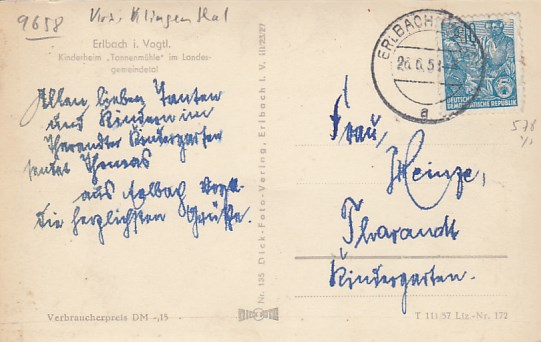 9658 Krs. Klingenthal
Erlbach i. Vogtl.
Kinderheim „Tannenmühle" im Landes-
gemeindetal
Allen lieben Tanten
und Kindern im
Tharandter Kindergarten
sendet Thomas
aus Erlbach Vogtl.
die herzlichsten Grüße.
Verbraucherpreis DM -,15
Nr. 135 Dick-Foto-Verlag, Erlbach i. V. III/25/27
ERLBACH
26.6.5
a
10
DEUTSCHE
DEMOKRATISCHE REPUBLIK
578
Frau,
Heinze,
Tharandt
Kindergarten.
T 111/57 Liz.-Nr. 172